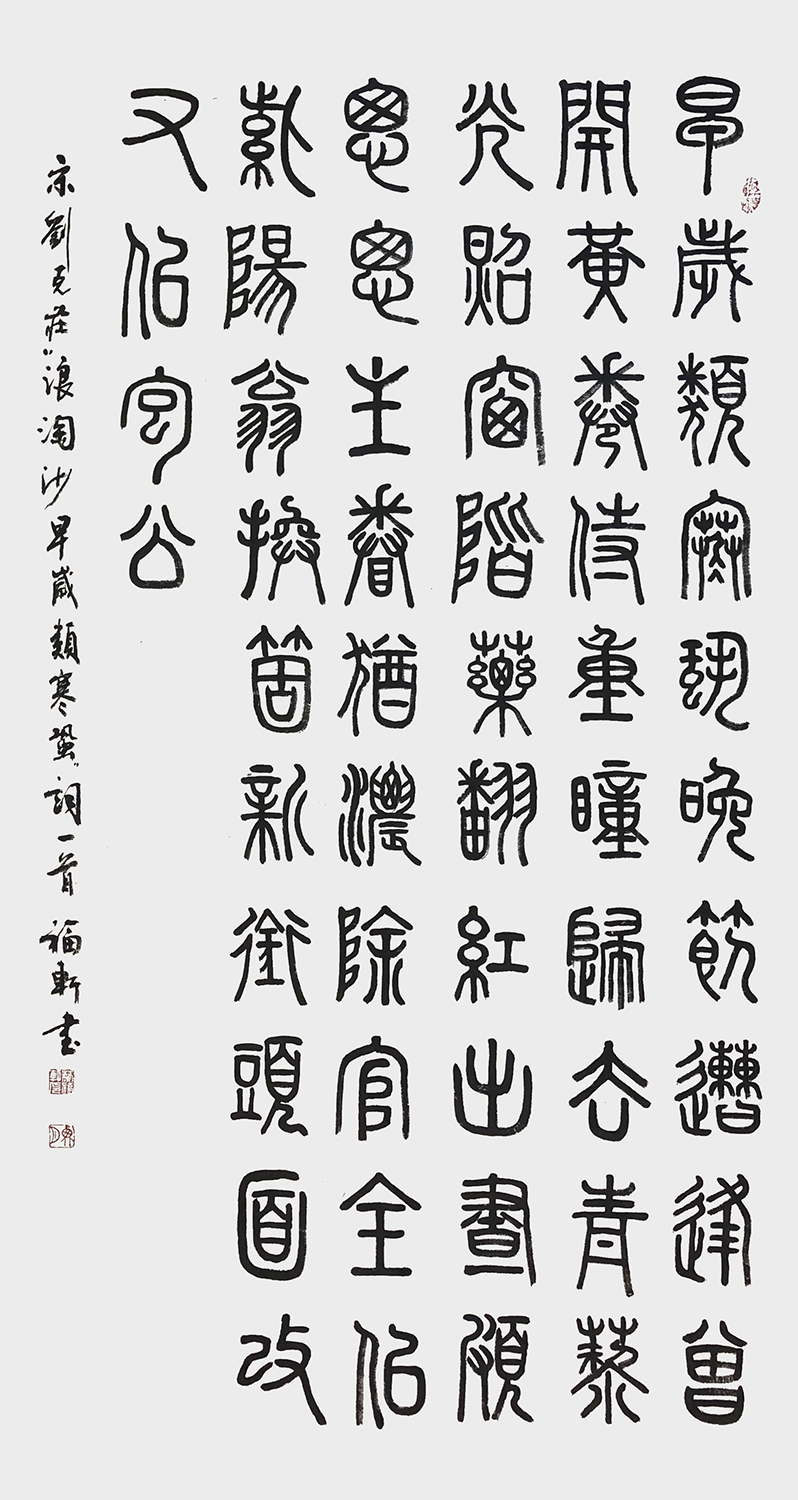 早歲類寒蛩晚節遭逢曾
開黃卷侍重瞳歸去青藜
光照窗階藥翻紅出晝頗
悤悤主眷猶濃除官全似
紫陽翁換箇新銜頭面改
又似包公
宋劉克莊"浪淘沙早歲類寒蛩"詞一首 福軒書